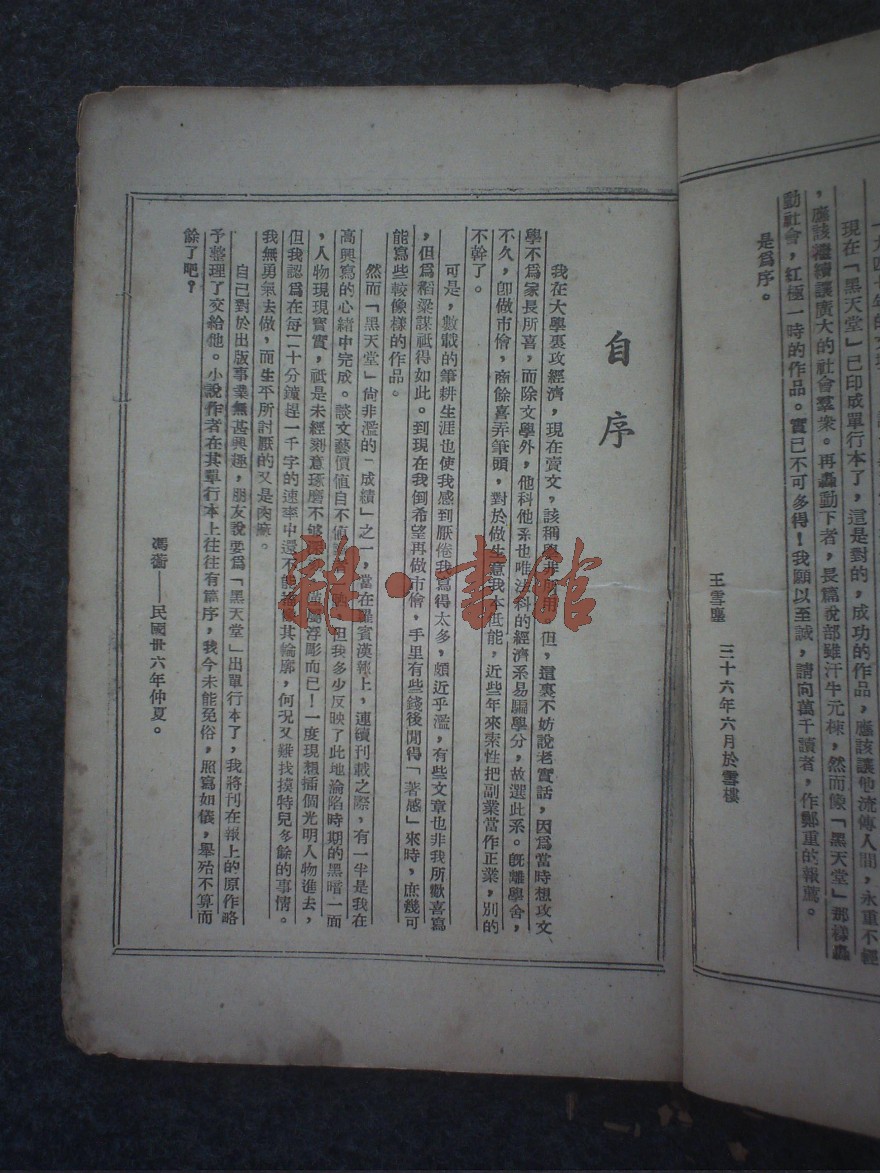 現在「黑天堂」已印成單行本了，這是對的，成功的作品，應該讓他流傳人間，永垂不
，應該繼續讓廣大的社會羣衆。再轟動下者，長篇說部雖汗牛元棟，然而陵「黑天堂」那樣轟
動社會，紅極一時的作品。實已不可多得！我願以至誠，請向萬千讀者，作鄭重的報薦。
是爲序。
王雪塵　三十六年六月於雪樓
自序
我在大學裏攻經濟，現在賣文，該稱學非所用，但，這裏不妨說老實話，因爲當時想攻文
學不爲家長所喜，而除文學外，他科他系也唯法科的經濟系易騙學分，故選此系。旣離學舍，
不久，卽做市儈，商餘喜弄筆頭，對於做生意我本低能，近些年來索性把副業當作正業，別的
不幹了。
可是，數載的筆耕生涯也使我感到厭倦我寫得太多，頗近乎濫，有些文章也非我所歡喜寫
，但爲稻粱謀祇得如此。到現在我倒希望再做市儈，手里有些錢後閒得「著感」來時，庶幾可
能寫些較像樣的作品。
然而「黑天堂」尙非濫的「成績」之一，當在羅賓漢報上，連續刊載之際，有一半是我在
高興寫的心緒中完成。談文藝價値自不値，但我多少反映了此地淪陷時期的黑暗一面
，人物現現實實，祇是未經刻意琢磨不够屬浮彫而已！一度現想插個光明人物進去，
但我認爲在每二十分鐘趕一千字的速率中還不能其輪廓，何况又難找摸特兒多餘的事情。
我無勇氣去做，而生平所討厭的又是肉麻。
自己對於出版事業無甚興趣，朋友說要爲「黑天堂」出單行本了，我將刊在報上的原作略
予整理了交給他。小說作者在其單行本上往往有篇序，我今未能免俗，照寫如儀，舉殆不算而
餘了吧？
馮蘅——民國卅六年仲夏。
龍・書館